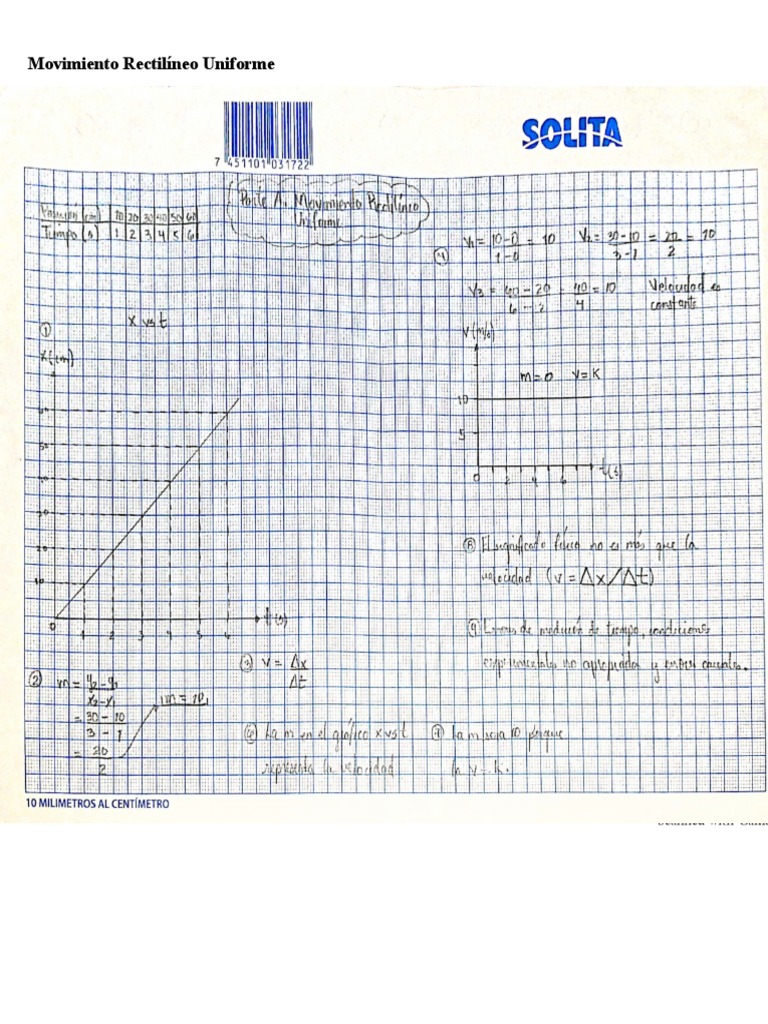 Movimiento Rectilíneo Uniforme
SOLITA
7 451101 031722
Parte A. Movimiento Rectilíneo
Uniforme
Posición (cm) 10 20 30 40 50 60
Tiempo (s) 1 2 3 4 5 6
① x vs t
x(cm)
60
50
40
30
20
10
0 1 2 3 4 5 6 t(s)
② m = y₂-y₁
x₂-x₁
= 30-10
3-1
= 20
2
m = 10
③ V = Δx
Δt
④ V₁ = 10-0 = 10
1-0
V₂ = 30-10 = 20 = 10
3-1 2
V₃ = 60-20 = 40 = 10
6-2 4
Velocidad es
constante
V(m/s)
m=0 V=K
10
5
0 2 4 6 t(s)
⑥ La m en el gráfico x vs t
representa la velocidad
La m sería 10 porque
la V = K.
⑧ El significado físico no es más que la
velocidad (v = Δx/Δt)
⑨ de medición de tiempo, condiciones
experimentales no apropiadas y errores casuales.
10 MILIMETROS AL CENTÍMETRO